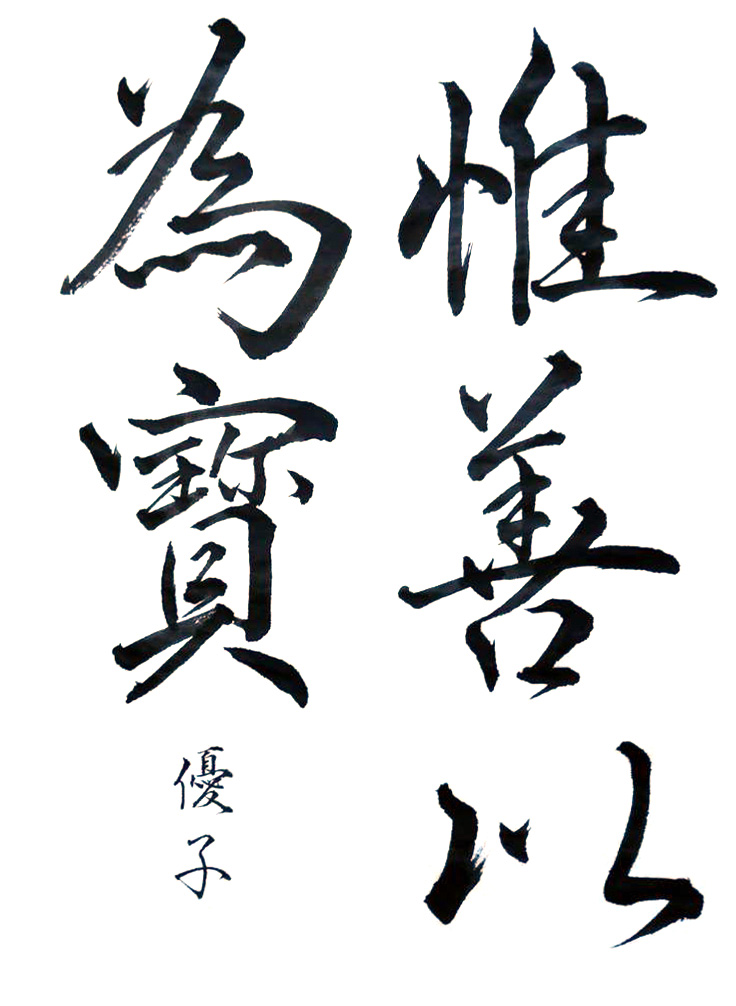 惟善以
為寶
優子